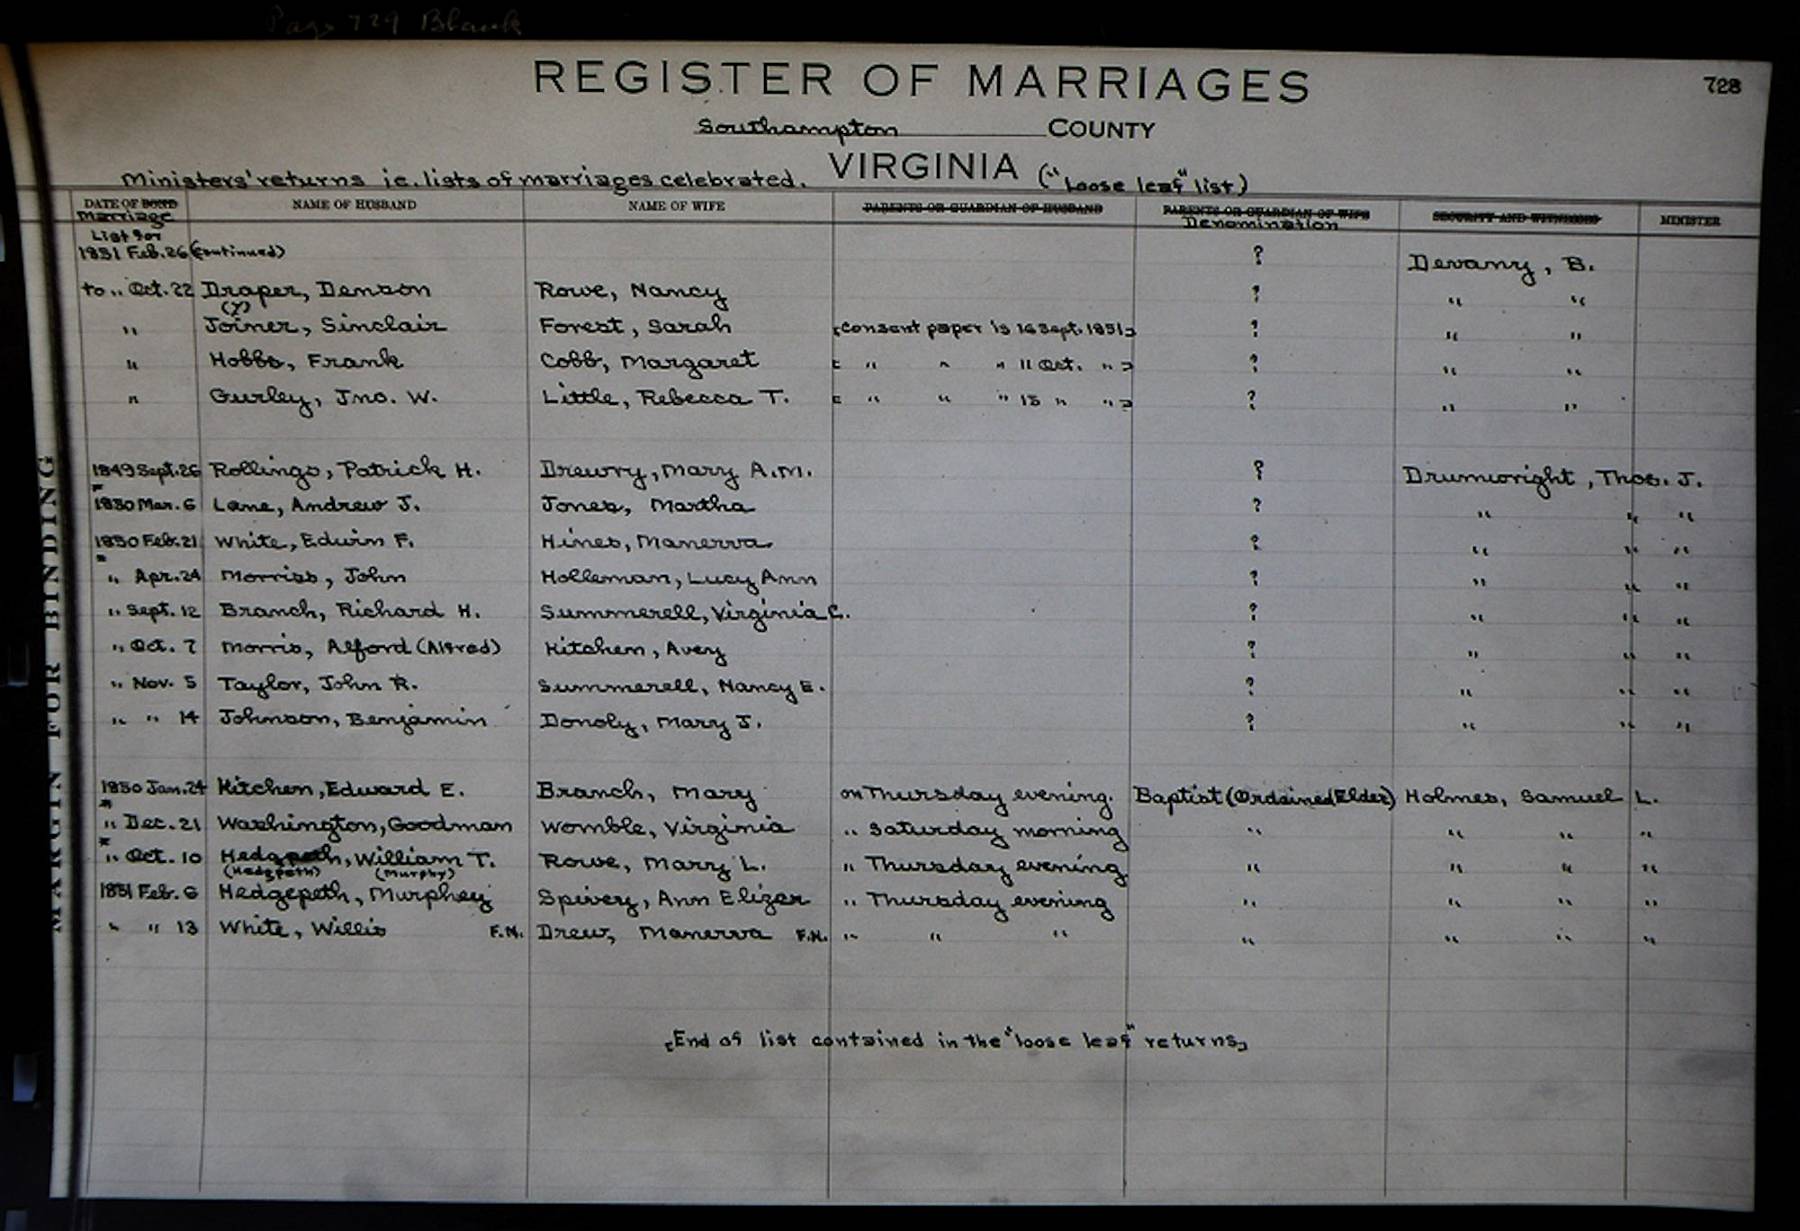 Page 729 Blank
REGISTER OF MARRIAGES
728
Southampton COUNTY
VIRGINIA
Ministers' returns ie. lists of marriages celebrated. ("loose leaf" list)
DATE OF BOND NAME OF HUSBAND NAME OF WIFE PARENTS OR GUARDIAN OF HUSBAND PARENTS OR GUARDIAN OF WIFE SECURITY AND WITNESSES MINISTER
Marriage Denomination
List for
1851 Feb. 26 (continued) ? Devany, B.
to " Oct. 22 Draper, Denson Rowe, Nancy ? " "
(y)
" Joiner, Sinclair Forest, Sarah [consent paper is 16 Sept. 1851] ? " "
" Hobbs, Frank Cobb, Margaret [ " " " 11 Oct. " ] ? " "
" Gurley, Jno. W. Little, Rebecca T. [ " " " 15 " " ] ? " "
1849 Sept. 26 Rollings, Patrick H. Drewry, Mary A.M. ? Drumwright, Thos. J.
1850 Mar. 6 Lane, Andrew J. Jones, Martha ? " " "
1850 Feb. 21 White, Edwin F. Hines, Manerva ? " " "
" Apr. 24 Morriss, John Holleman, Lucy Ann ? " " "
" Sept. 12 Branch, Richard H. Summerell, Virginia C. ? " " "
" Oct. 7 Morris, Alford (Alfred) Kitchen, Avery ? " " "
" Nov. 5 Taylor, John R. Summerell, Nancy E. ? " " "
" " 14 Johnson, Benjamin Donoly, Mary J. ? " " "
1850 Jan. 24 Kitchen, Edward E. Branch, Mary on Thursday evening. Baptist (Ordained Elder) Holmes, Samuel L.
" Dec. 21 Washington, Goodman Womble, Virginia " Saturday morning " " " "
" Oct. 10 Hedgpeth, William T. Rowe, Marry L. " Thursday evening " " " "
(Hedgpeth) (Murphy)
1851 Feb. 6 Hedgepeth, Murphey Spivery, Ann Elizer " Thursday evening " " " "
" " 13 White, Willis F.N. Drew, Manerva F.N. " " " " " " "
[End of list contained in the "loose leaf" returns]
MARGIN FOR BINDING